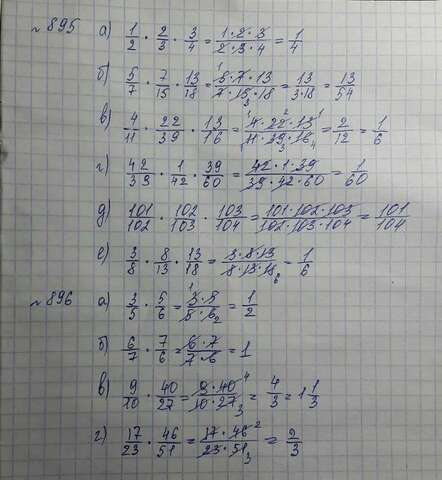 №895 а) 1/2 · 2/3 · 3/4 = 1·2·3/2·3·4 = 1/4
б) 5/7 · 7/15 · 13/18 = 5·7·13/7·15·18 = 13/3·18 = 13/54
в) 4/11 · 22/39 · 13/16 = 4·22·13/11·39·16 = 2/12 = 1/6
г) 42/39 · 1/42 · 39/60 = 42·1·39/39·42·60 = 1/60
д) 101/102 · 102/103 · 103/104 = 101·102·103/102·103·104 = 101/104
е) 3/8 · 8/13 · 13/18 = 3·8·13/8·13·18 = 1/6
№896 а) 3/5 · 5/6 = 3·5/5·6 = 1/2
б) 6/7 · 7/6 = 6·7/7·6 = 1
в) 9/10 · 40/27 = 9·40/10·27 = 4/3 = 1 1/3
г) 17/23 · 46/51 = 17·46/23·51 = 2/3